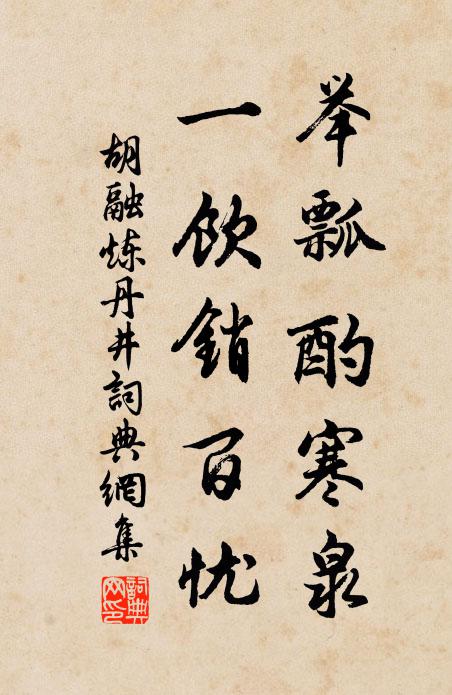 举瓢酌寒泉
一饮销百忧
胡融炼丹井詞典網集
詞典网印